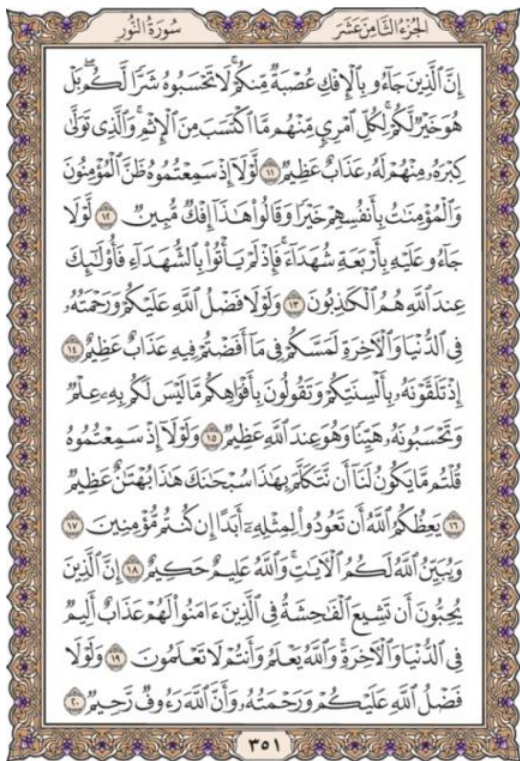 الجُزْءُ الثَّامِنَ عَشَرَ سُورَةُ النُّورِ
إِنَّ ٱلَّذِينَ جَآءُو بِٱلْإِفْكِ عُصْبَةٌ مِّنكُمْ ۚ لَا تَحْسَبُوهُ شَرًّا لَّكُم ۖ بَلْ
هُوَ خَيْرٌ لَّكُمْ ۚ لِكُلِّ ٱمْرِئٍ مِّنْهُم مَّا ٱكْتَسَبَ مِنَ ٱلْإِثْمِ ۚ وَٱلَّذِى تَوَلَّىٰ
كِبْرَهُۥ مِنْهُمْ لَهُۥ عَذَابٌ عَظِيمٌ ١١ لَّوْلَآ إِذْ سَمِعْتُمُوهُ ظَنَّ ٱلْمُؤْمِنُونَ
وَٱلْمُؤْمِنَٰتُ بِأَنفُسِهِمْ خَيْرًا وَقَالُوا۟ هَٰذَآ إِفْكٌ مُّبِينٌ ١٢ لَّوْلَا
جَآءُو عَلَيْهِ بِأَرْبَعَةِ شُهَدَآءَ ۚ فَإِذْ لَمْ يَأْتُوا۟ بِٱلشُّهَدَآءِ فَأُو۟لَٰٓئِكَ
عِندَ ٱللَّهِ هُمُ ٱلْكَٰذِبُونَ ١٣ وَلَوْلَا فَضْلُ ٱللَّهِ عَلَيْكُمْ وَرَحْمَتُهُۥ
فِى ٱلدُّنْيَا وَٱلْءَاخِرَةِ لَمَسَّكُمْ فِى مَآ أَفَضْتُمْ فِيهِ عَذَابٌ عَظِيمٌ ١٤
إِذْ تَلَقَّوْنَهُۥ بِأَلْسِنَتِكُمْ وَتَقُولُونَ بِأَفْوَاهِكُم مَّا لَيْسَ لَكُم بِهِۦ عِلْمٌ
وَتَحْسَبُونَهُۥ هَيِّنًا وَهُوَ عِندَ ٱللَّهِ عَظِيمٌ ١٥ وَلَوْلَآ إِذْ سَمِعْتُمُوهُ
قُلْتُم مَّا يَكُونُ لَنَآ أَن نَّتَكَلَّمَ بِهَٰذَا سُبْحَٰنَكَ هَٰذَا بُهْتَٰنٌ عَظِيمٌ
١٦ يَعِظُكُمُ ٱللَّهُ أَن تَعُودُوا۟ لِمِثْلِهِۦٓ أَبَدًا إِن كُنتُم مُّؤْمِنِينَ ١٧
وَيُبَيِّنُ ٱللَّهُ لَكُمُ ٱلْءَايَٰتِ ۚ وَٱللَّهُ عَلِيمٌ حَكِيمٌ ١٨ إِنَّ ٱلَّذِينَ
يُحِبُّونَ أَن تَشِيعَ ٱلْفَٰحِشَةُ فِى ٱلَّذِينَ ءَامَنُوا۟ لَهُمْ عَذَابٌ أَلِيمٌ
فِى ٱلدُّنْيَا وَٱلْءَاخِرَةِ ۚ وَٱللَّهُ يَعْلَمُ وَأَنتُمْ لَا تَعْلَمُونَ ١٩ وَلَوْلَا
فَضْلُ ٱللَّهِ عَلَيْكُمْ وَرَحْمَتُهُۥ وَأَنَّ ٱللَّهَ رَءُوفٌ رَّحِيمٌ ٢٠
٣٥١